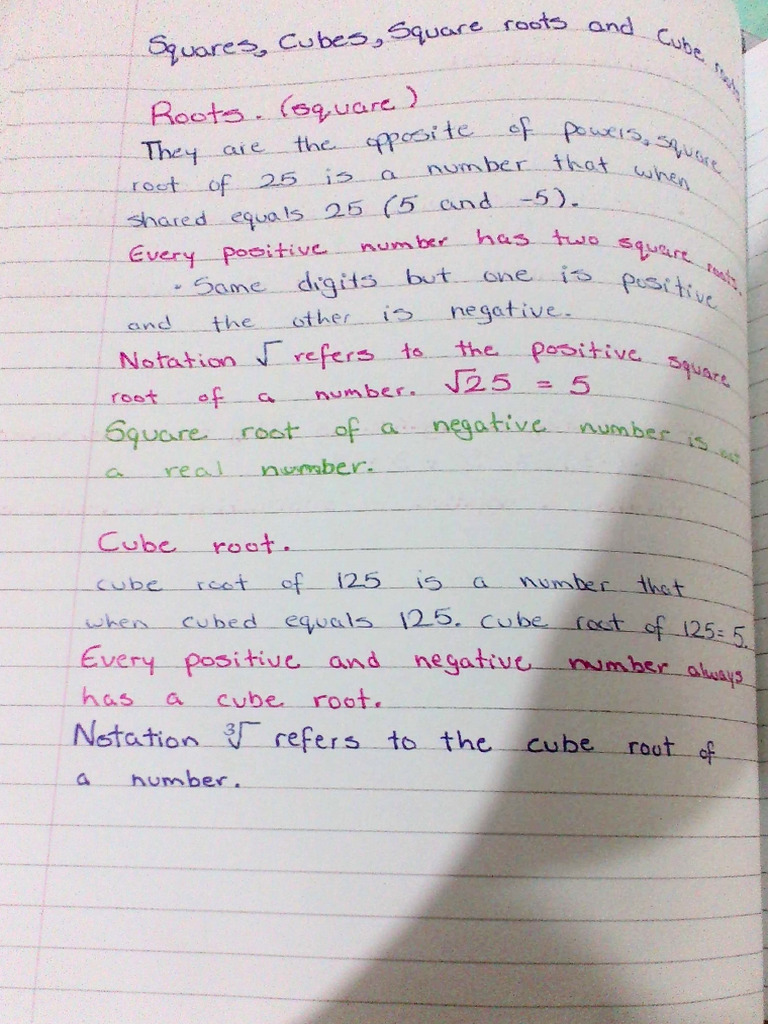 Squares, Cubes, Square roots and Cube roots
Roots. (square)
They are the opposite of powers, square
root of 25 is a number that when
shared equals 25 (5 and -5).
Every positive number has two square roots.
• Same digits but one is positive
and the other is negative.
Notation √ refers to the positive square
root of a number. √25 = 5
Square root of a negative number is not
a real number.
Cube root.
cube root of 125 is a number that
when cubed equals 125. cube root of 125=5.
Every positive and negative number always
has a cube root.
Notation ∛ refers to the cube root of
a number.